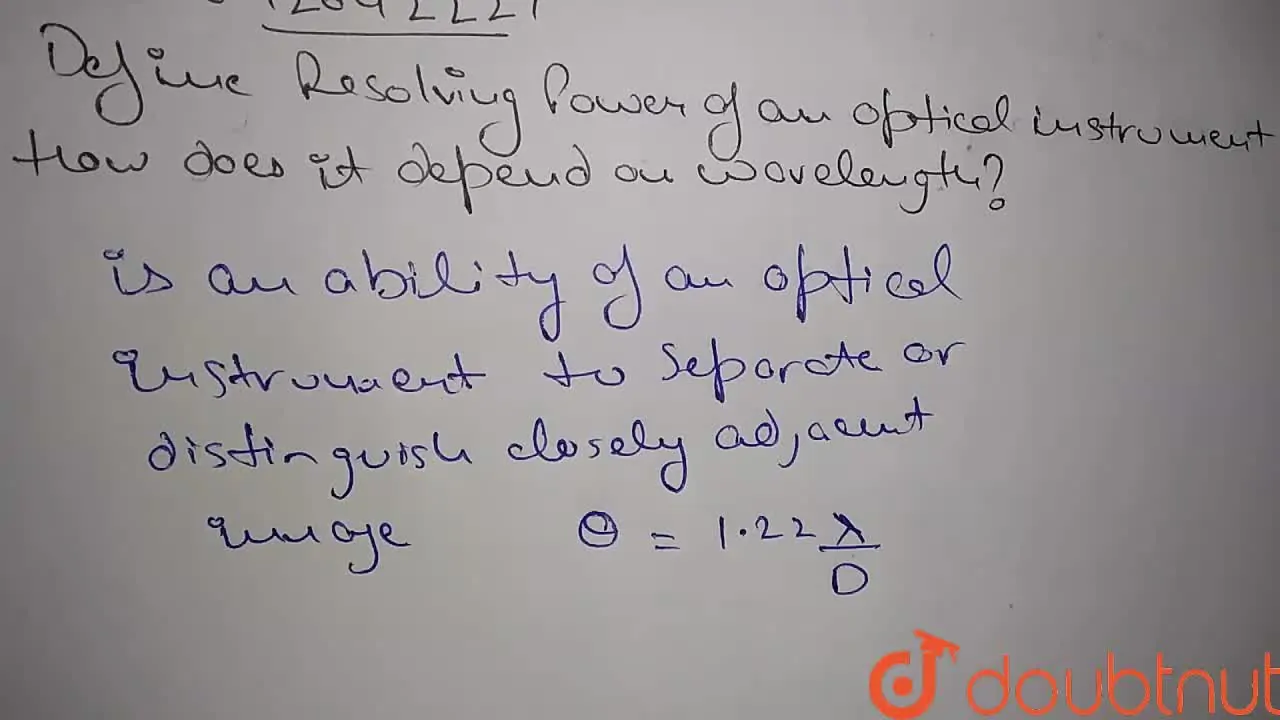 Define Resolving Power of an optical instrument
How does it depend on wavelength?
is an ability of an optical
instrument to separate or
distinguish closely adjacent
image θ = 1.22 λ/D
doubtnut